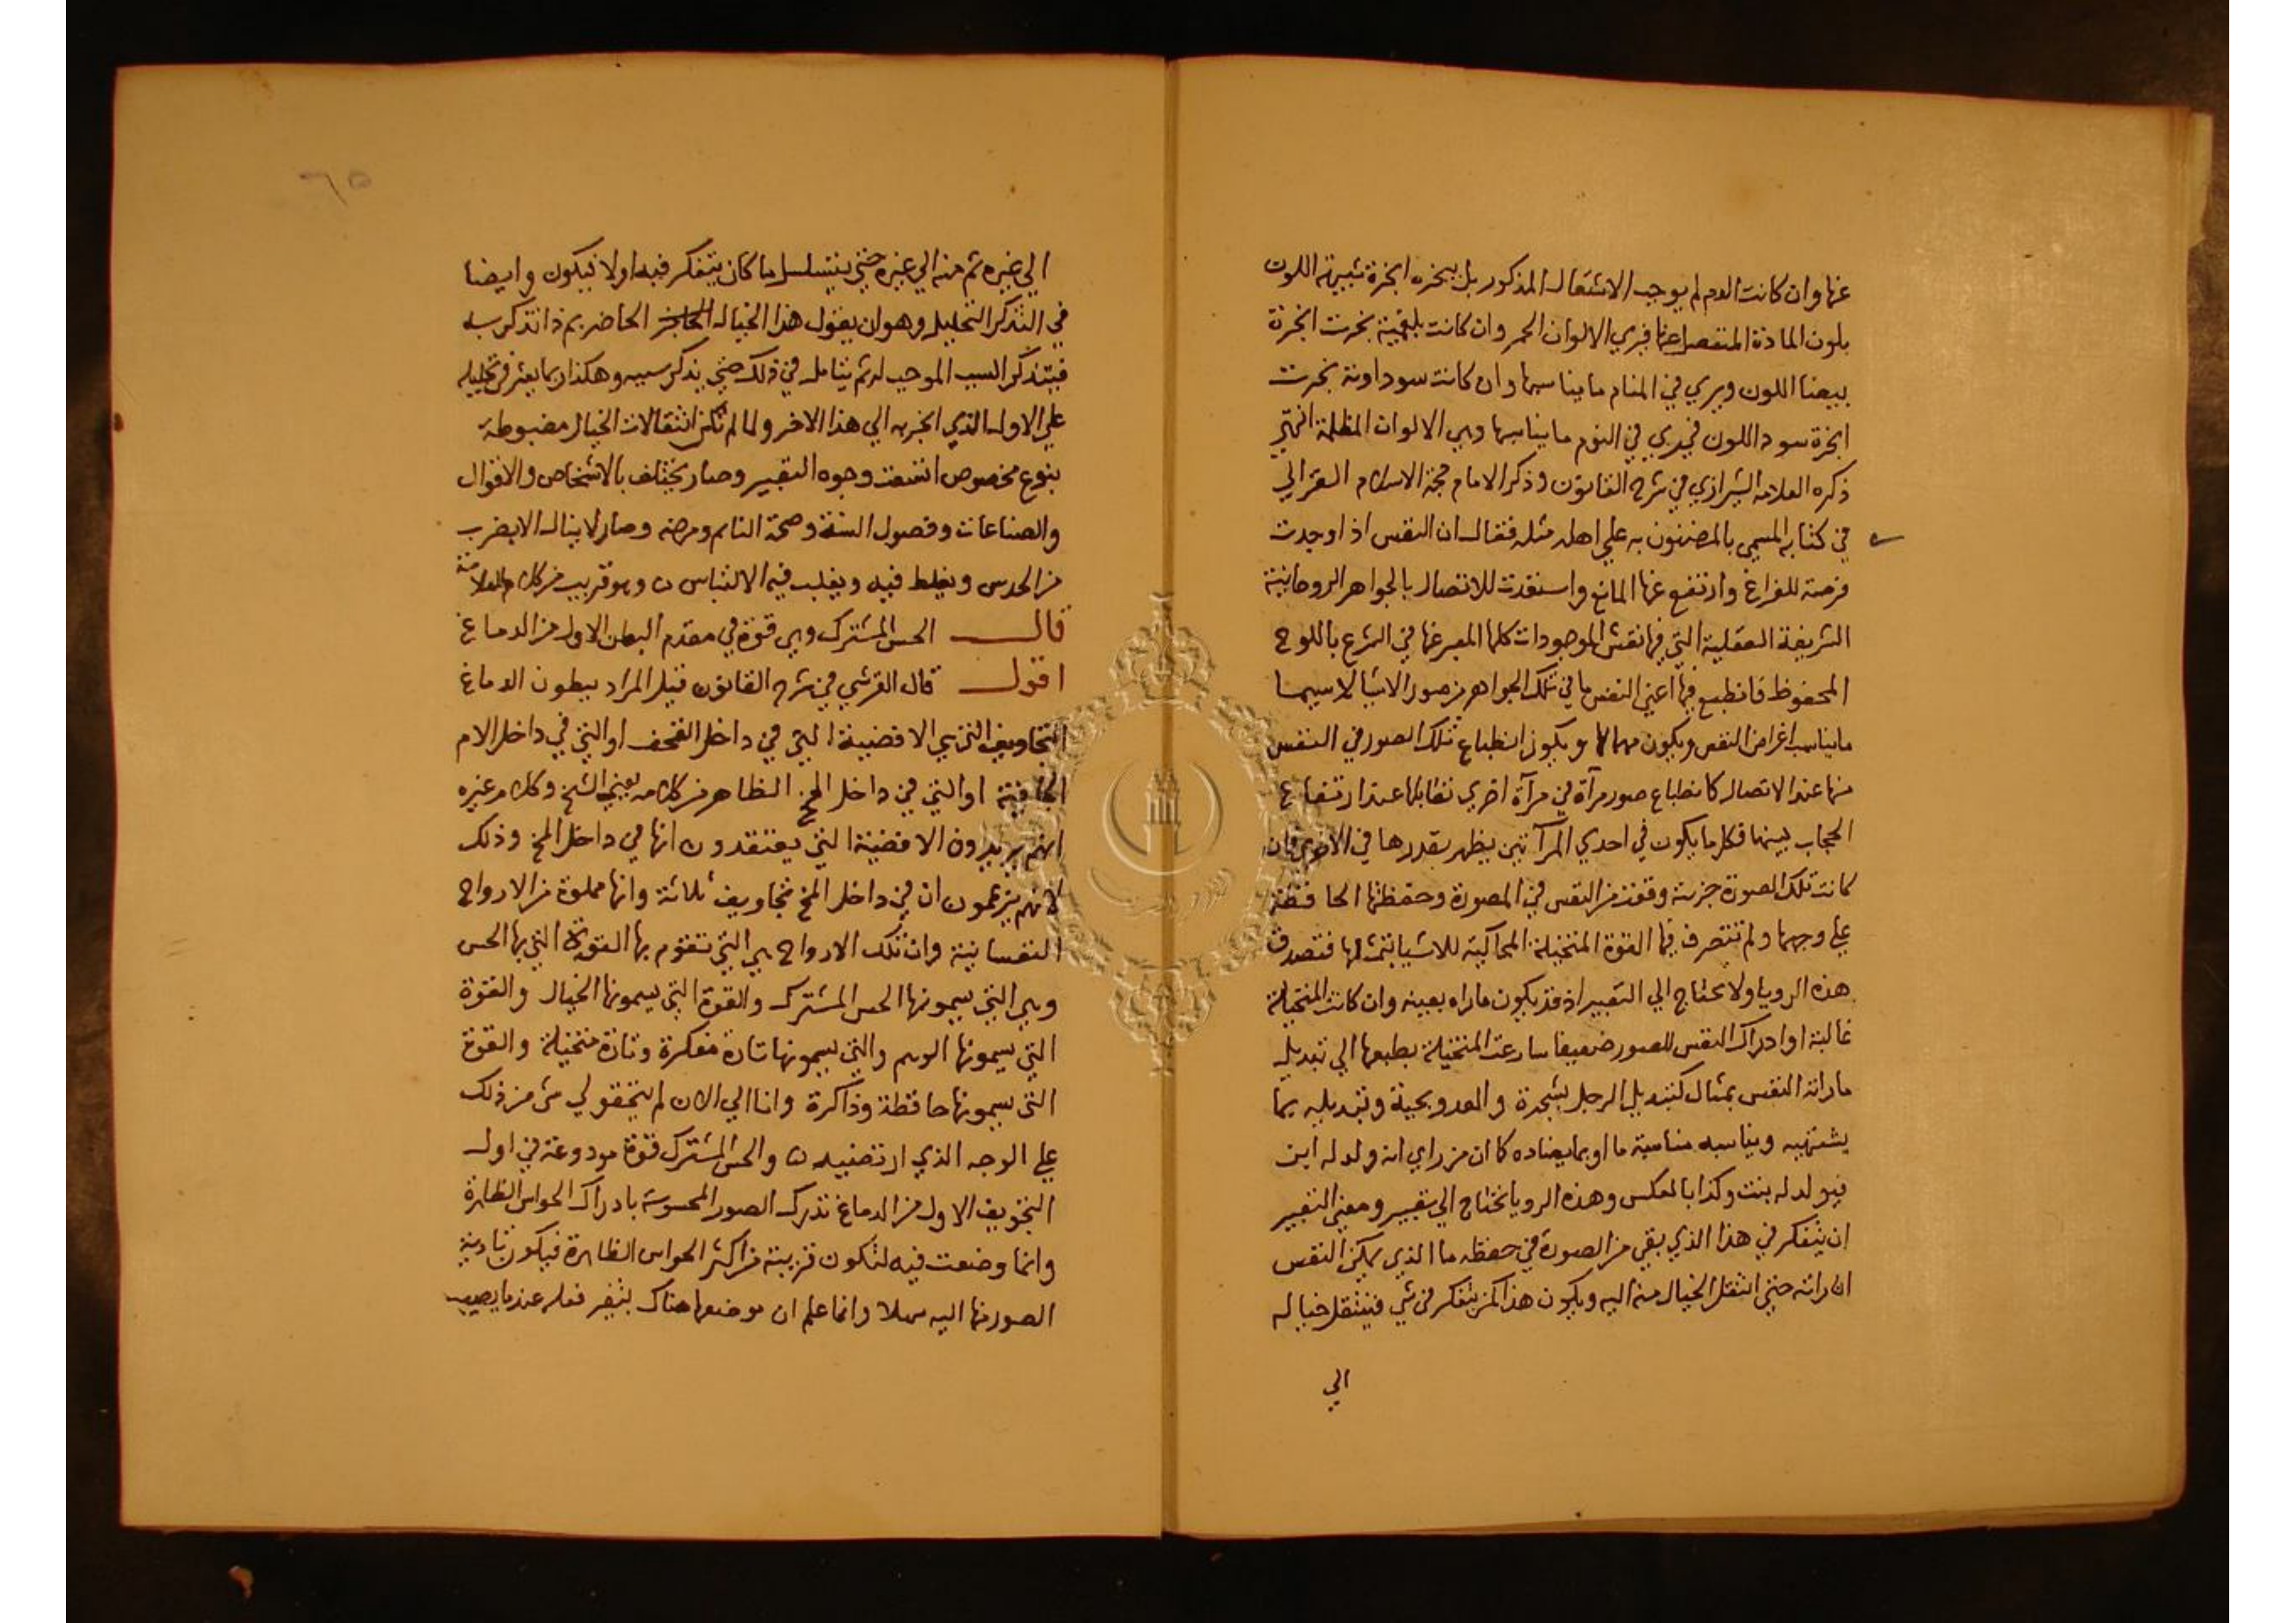 عنها وان كانت الدم لم يوجب الاشتعال المذكور بل يبخره ابخرة شبيهة اللون
بلون المادة المنفصل عنها فيري الالوان الحمر وان كانت بلغمية بخرت ابخرة
بيضا اللون ويري في المنام ما يناسبها وان كانت سوداوية بخرت
ابخرة سود اللون فيري في النوم ما يناسبها وهي الالوان المظلمة انتهي
ذكره العلامة الشيرازي في شرح القانون وذكر الامام حجة الاسلام الغزالي
في كتابه المسمي بالمضنون به علي اهله مثله فقال ان النفس اذا وجدت
فرصة للفراغ وارتفع عنها المانع واستعدت للاتصال بالجواهر الروحانية
الشريفة العقلية التي فيها نقش الموجودات كلها المعبر عنها في الشرع باللوح
المحفوظ فانطبع فيها اعني النفس ما في تلك الجواهر من صور الاشيا لا سيما
ما يناسب اغراض النفس ويكون مهما لها ويكون انطباع تلك الصور في النفس
منها عند الاتصال كانطباع صور مرآة في مرآة اخري تقابلها عند ارتفاع
الحجاب بينهما فكل ما يكون في احدي المرآتين يظهر بقدرها في الاخري فان
كانت تلك الصورة جزئية وقعت من النفس في المصورة وحفظتها الحافظة
علي وجهها ولم تتصرف فيها القوة المتخيلة المحاكية للاشيا بتمثلها فتصدق
هذه الرويا ولا تحتاج الي التعبير اذ قد يكون ما راه بعينه وان كانت المتخيلة
غالبة او ادراك النفس للصور ضعيفا سارعت المتخيلة بطبعها الي تبديل
ما راته النفس بمثال كتبديل الرجل بشجرة والعدو بحية وتبديله بما
يشبهه ويناسبه مناسبة ما او بما يضاده كما ان من راي انه ولد له ابن
فيولد له بنت وكذا بالعكس وهذه الرويا تحتاج الي تعبير ومعني التعبير
ان يتفكر في هذا الذي بقي من الصورة في حفظه ما الذي يمكن النفس
ان راته حتي انتقل الخيال منه اليه ويكون هذا كمن يتفكر في شي فينتقل خياله
الي
٦٥
الي غيره ثم منه الي غيره حتي يتسلسل ما كان يتفكر فيه اولا فيكون وايضا
في التذكر التحليل وهو ان يقول هذا الخيال الحاضر الحاضر بم ذا تذكر به
فيتذكر السبب الموجب له ثم يتامل في ذلك حتي يذكر سببه وهكذا ربما يعثر في تحليله
علي الاول الذي انجر به الي هذا الاخر ولما لم تكن انتقالات الخيال مضبوطة
بنوع مخصوص انشعت وجوه التعبير وصار يختلف بالاشخاص والاقوال
والصناعات وفصول السنة وصحة النائم ومرضه وصار لا ينال الا بضرب
من الحدس ويغلط فيه ويغلب فيه الالتباس ن وهو قريب من كلام العلامة
قال الحس المشترك وهي قوة في مقدم البطن الاول من الدماغ
اقول قال القرشي في شرح القانون قيل المراد ببطون الدماغ
التجاويف التي هي الافضية التي في داخل القحف او التي في داخل الام
الجافية او التي في داخل المخ الظاهر من كلامه يعني الشيخ وكلام غيره
انهم يريدون الافضية التي يعتقدون انها في داخل المخ وذلك
لانهم يزعمون ان في داخل المخ تجاويف ثلاثة وانها مملوة من الارواح
النفسانية وان تلك الارواح هي التي تقوم بها القوة التي بها الحس
وهي التي يسمونها الحس المشترك والقوة التي يسمونها الخيال والقوة
التي يسمونها الوهم والتي يسمونها تارة مفكرة وتارة متخيلة والقوة
التي يسمونها حافظة وذاكرة وانا الي الان لم يتحقق لي شي من ذلك
علي الوجه الذي ارتضيه ن والحس المشترك قوة مودوعة في اول
التجويف الاول من الدماغ تدرك الصور المحسوسة بادراك الحواس الظاهرة
وانما وضعت فيه لتكون قريبة من اكثر الحواس الظاهرة فيكون تادية
الصور منها اليه سهلا وانما علم ان موضعها هناك بتغير فعله عندما يصيب